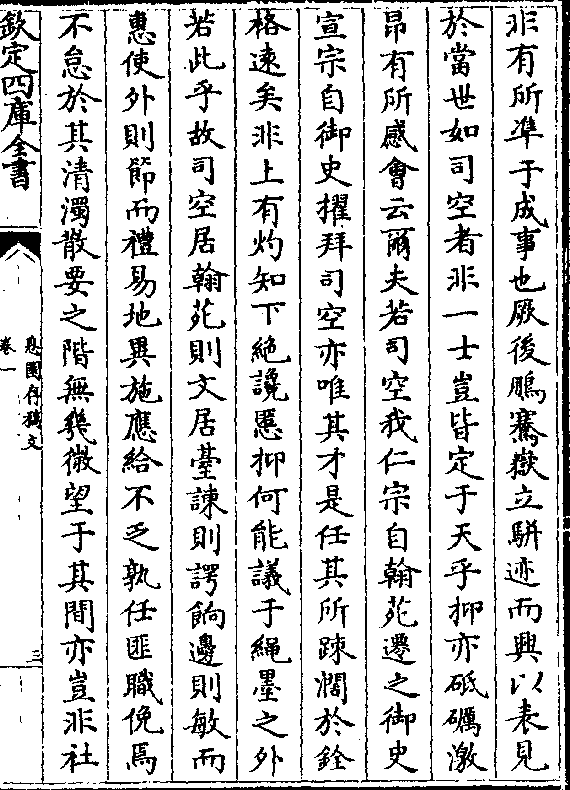 非有所準于成事也厥後鵬騫嶽立駢迹而興以表見
於當世如司空者非一士豈皆定于天乎抑亦砥礪激
昂有所感會云爾夫若司空我仁宗自翰苑遷之御史
宣宗自御史擢拜司空亦唯其才是任其所踈濶於銓
格遠矣非上有灼知下絶讒慝抑何能議于繩墨之外
若此乎故司空居翰苑則文居臺諫則諤餉邊則敏而
惠使外則節而禮易地異施應給不乏孰任匪職俛焉
不怠於其清濁散要之階無幾微望于其間亦豈非社
欽定四庫全書
息園存稿文
卷一
三